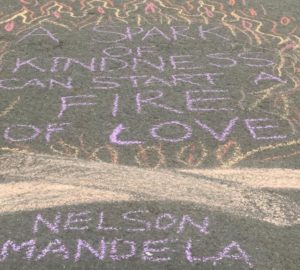 A SPARK
OF
KINDNESS
CAN START A
FIRE
OF LOVE
NELSON
MANDELA